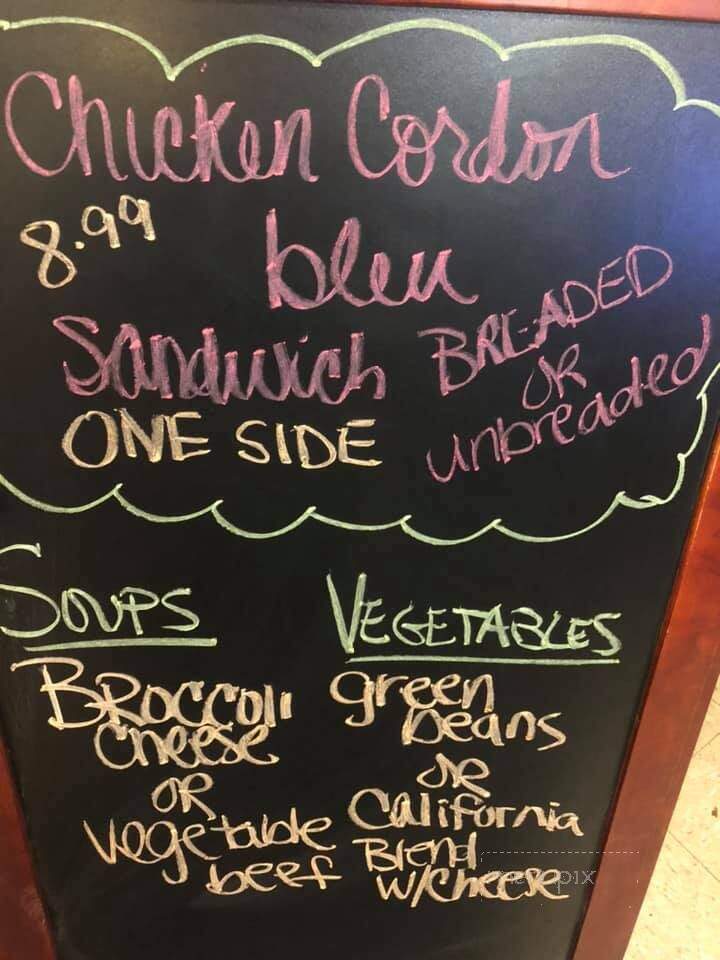 Chicken Cordon
8.99 bleu
Sandwich BREADED
OR
unbreaded
ONE SIDE
SOUPS
BROCCOli
Cheese
OR
Vegetable
beef
VEGETABLES
green
beans
OR
California
Blend
w/cheese